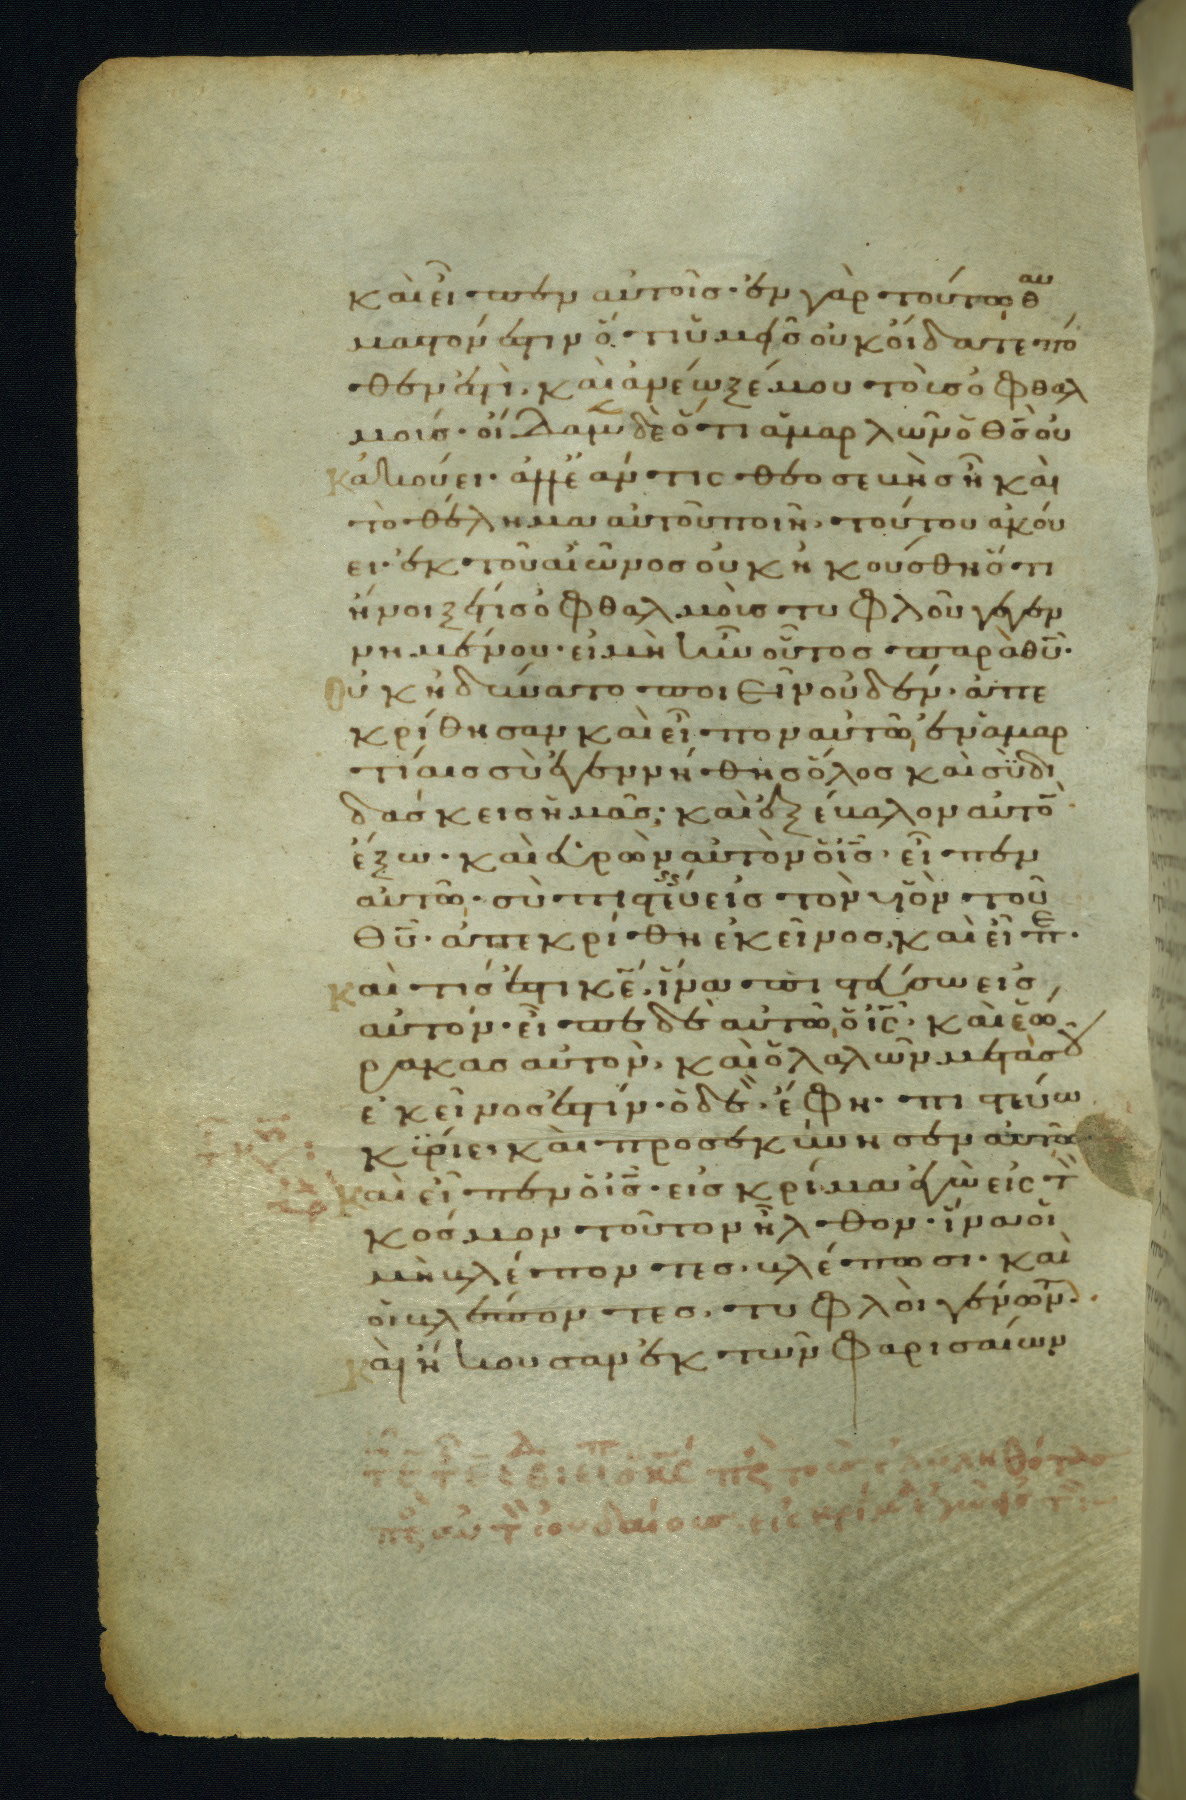 καὶ εἶπεν αὐτοῖσ· ἐν γὰρ τούτω θαυ
μαστόν ἐστιν ὅτι ὑμεῖσ οὐκ οἴδατε πό
θεν ἐστὶ, καὶ ἀνέωξέ μου τοὺσ ὀφθαλ
μούσ· οἴδαμεν δὲ ὅτι ἁμαρτωλῶν ὁ θς οὐ
κ ἀκούει· ἀλλ' ἐάν τις θεοσεβὴσ ἦ καὶ
τὸ θέλημα αὐτοῦ ποιῆ, τούτου ἀκού
ει· ἐκ τοῦ αἰῶνοσ οὐκ ἠκούσθη ὅτι
ἤνοιξέ τισ ὀφθαλμοὺσ τυφλοῦ γεγεν
νημένου· εἰ μὴ ἦν οὗτοσ παρὰ θυ·
οὐκ ἠδύνατο ποιεῖν οὐδέν· ἀπε
κρίθησαν καὶ εἶπον αὐτῶ, ἐν ἁμαρ
τίαισ σὺ ἐγεννήθησ ὅλοσ καὶ σὺ δι
δάσκεισ ἡμᾶσ; καὶ ἐξέβαλον αὐτὸ
ἔξω· καὶ εὑρὼν αὐτὸν ὁ ις· εἶπεν
αὐτῶ· σὺ πιστεύεισ εἰσ τὸν υἱὸν τοῦ
θυ· ἀπεκρίθη ἐκεῖνοσ, καὶ εἶπε·
καὶ τίσ ἐστι κε, ἵνα πιστεύσω εἰσ
αὐτόν· εἶπε δὲ αὐτῶ, ὁ ις· καὶ ἑώ
ρακασ αὐτὸν, καὶ ὁ λαλῶν μετὰ σοῦ
ἐκεῖνοσ ἐστίν· ὁ δὲ· ἔφη· πιστεύω
κύριε, καὶ προσεκύνησεν αὐτῶ
καὶ εἶπεν ὁ ις· εἰσ κρίμα ἐγὼ εἰς τὸ
κόσμον τοῦτον ἦλθον· ἵνα οἱ
μὴ βλέποντεσ, βλέπωσι· καὶ
οἱ βλέποντεσ, τυφλοὶ γένωνται.
καὶ ἤκουσαν ἐκ τῶν φαρισαίων
πς τοὺσ ἐληλυθότασ
πς αὐτὸ ἰουδαίουσ εἰς κρίμα ἐγὼ εἰς τὸ